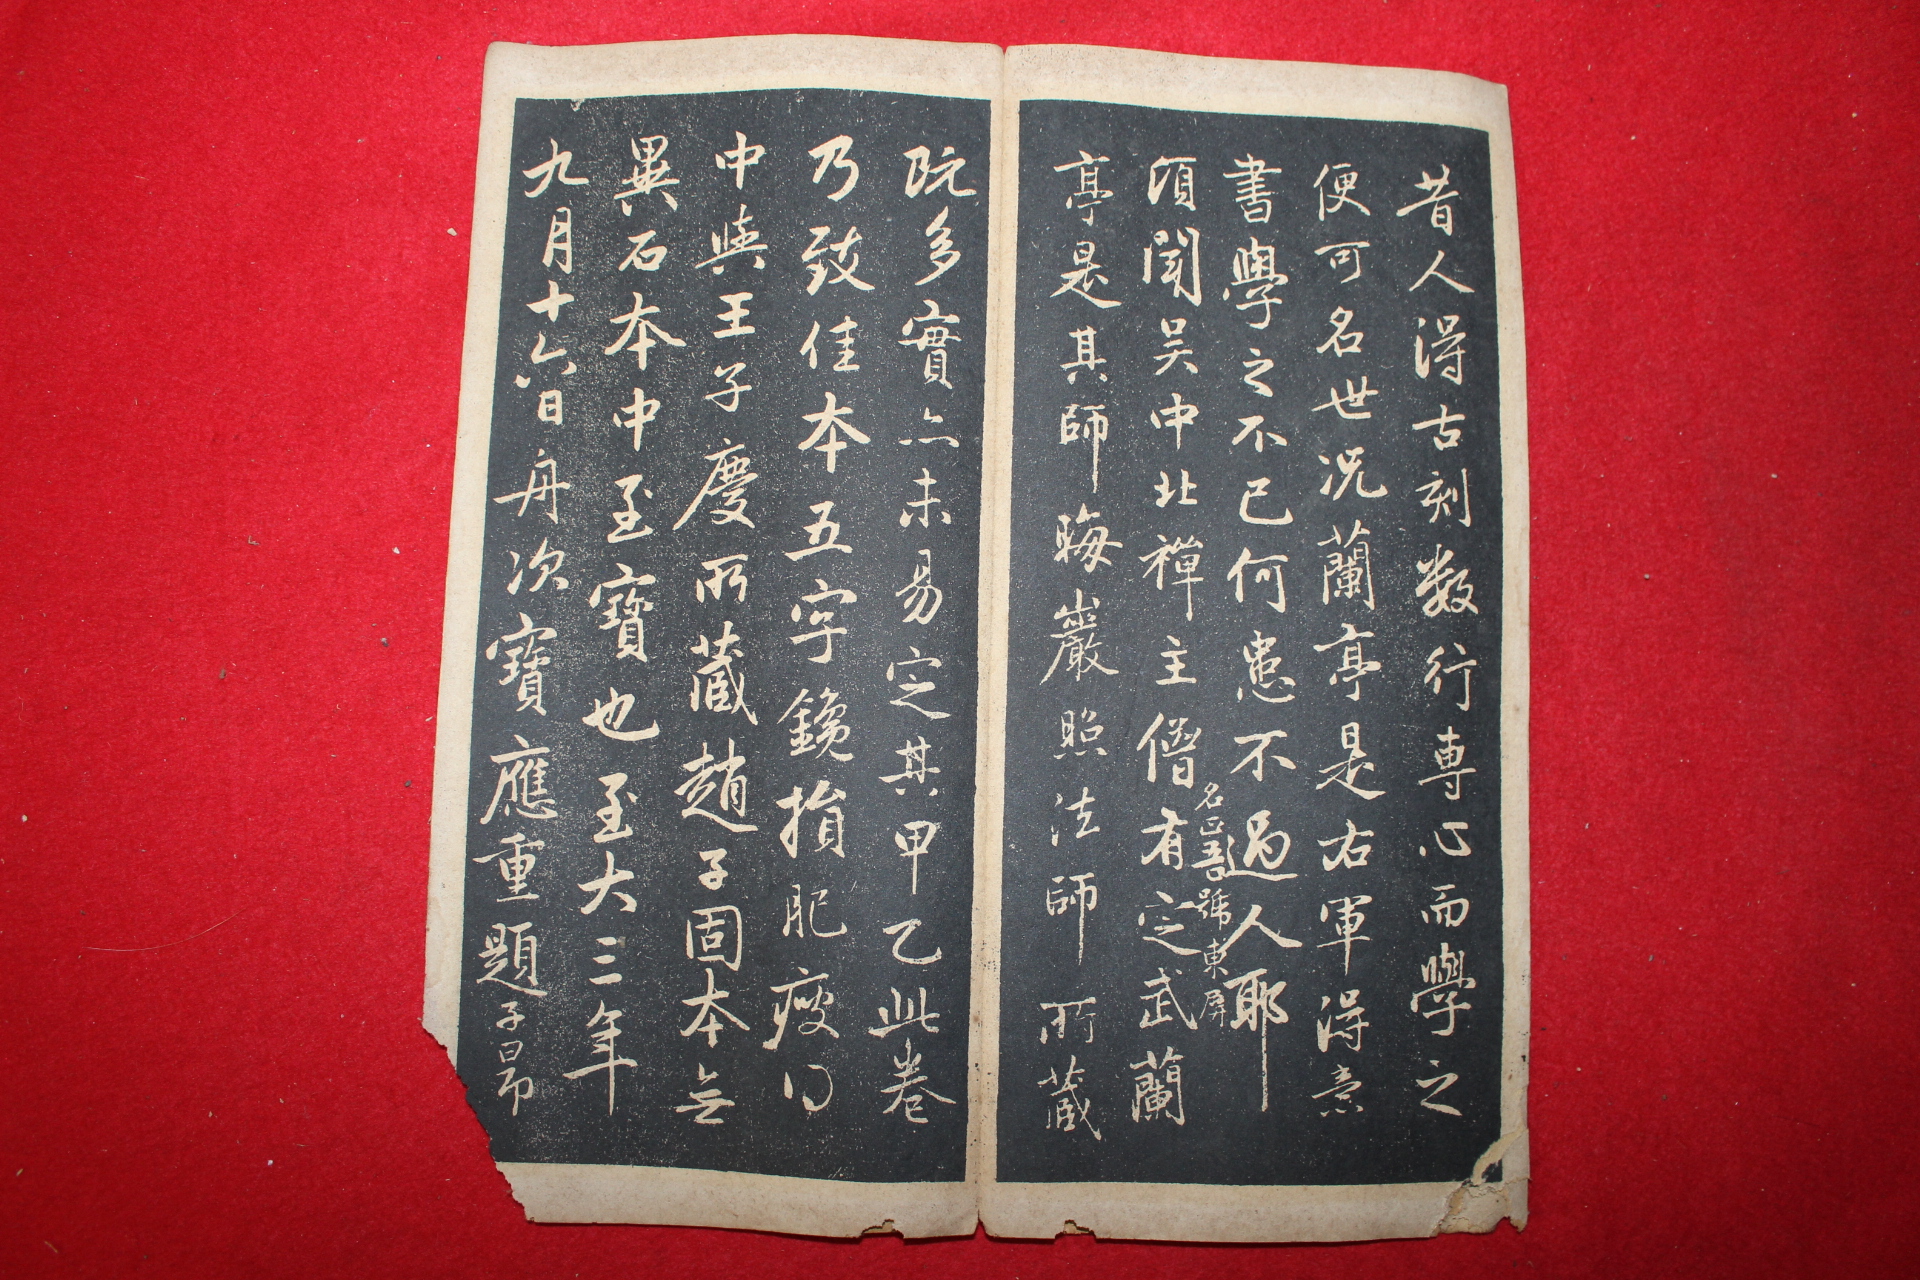 昔人得古刻數行專心而學之
便可名世況蘭亭是右軍得意
書學之不已何患不過人耶
頃聞吳中北禪主僧有定武蘭
名正吾號東屏
亭是其師晦巖照法師所藏
既多實亦未易定其甲乙此卷
乃致佳本五字鑱損肥瘦得
中與王子慶所藏趙子固本無
異石本中至寶也至大三年
九月十六日舟次寶應重題子昂